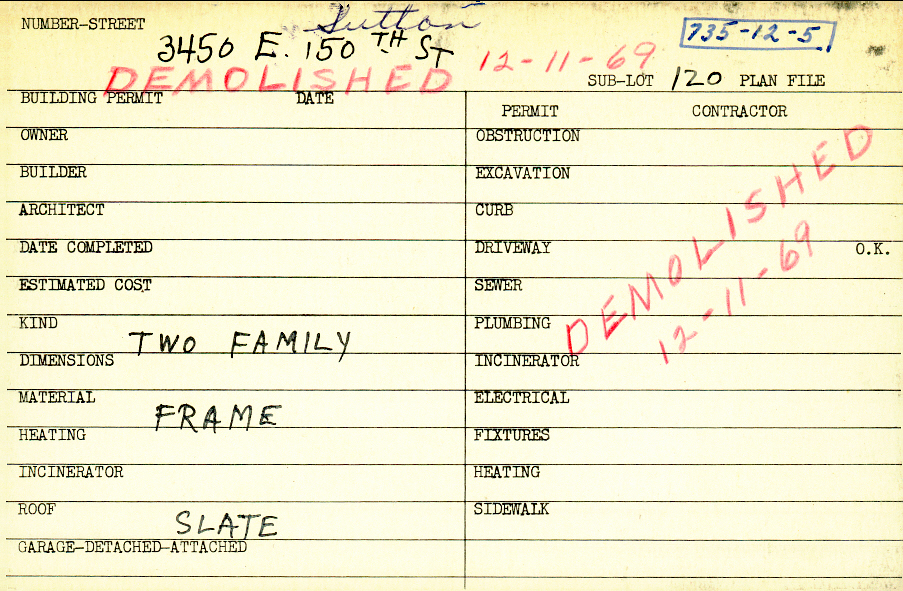 NUMBER-STREET Sutton 735-12-5
3450 E. 150 TH ST 12-11-69
DEMOLISHED SUB-LOT 120 PLAN FILE
BUILDING PERMIT DATE
PERMIT CONTRACTOR
OWNER
OBSTRUCTION
BUILDER
EXCAVATION
ARCHITECT
CURB
DATE COMPLETED
DRIVEWAY O.K.
ESTIMATED COST
SEWER
KIND TWO FAMILY
PLUMBING
DIMENSIONS
INCINERATOR
MATERIAL FRAME
ELECTRICAL
HEATING
FIXTURES
INCINERATOR
HEATING
ROOF SLATE
SIDEWALK
GARAGE-DETACHED-ATTACHED
DEMOLISHED
12-11-69